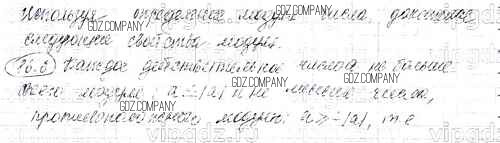 Используя определение модуля числа докажите
следующие свойства модулей.
16.6 Каждое действительное число a не больше
своего модуля: a ≤ |a| и не меньше числа,
противоположного модулю: a ≥ -|a|, т.е
GDZ.COMPANY
GDZ.COMPANY
GDZ.COMPANY
GDZ.COMPANY
GDZ.COMPANY
GDZ.COMPANY
vipgdz.ru